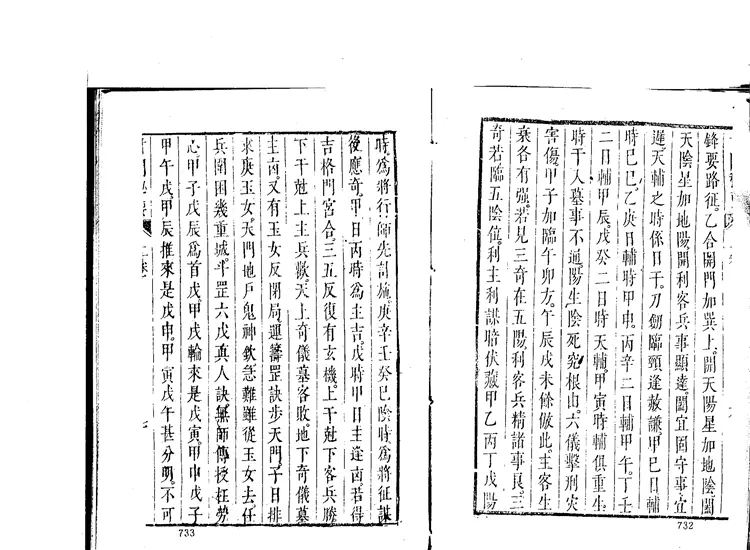 鋒要路征。乙合開門加巽上。開天陽星加地陰闔
天陰星加地陽開利客兵事顯達。闔宜固守事宜
遲。天輔之時係日干。刀劒臨頸逢赦謙。甲巳日未
時巳巳。乙庚日輔時甲申。丙辛二日輔甲午。丁壬
二日輔甲辰。戊癸二日時天輔。甲寅時輔俱重生
時干入墓事不通。陽生陰死究根由。六儀擊刑灾
害傷。甲子加臨午卯方。午辰戌未餘倣此。主客生
乘各有强。若見三奇在五陽利客兵精諸事良。三
奇若臨五陰位。利主利謀暗伏藏。甲乙丙丁戊陽
732
時爲將行師先討施。庚辛壬癸巳陰時爲將征謀
後應奇。甲日丙時爲主吉。戊時甲日主逢凶。若得
吉格門宮合。三五反復有玄機。上干尅下客兵勝
下干尅上主兵歡。天上奇儀墓客敗。地下奇儀墓
主凶。又有玉女反閉局。運籌罡訣步天門。子日排
來庚玉女。天門地戶鬼神欽。急難雖從玉女去。任
兵圍困幾重城。斗罡六戊真人訣。無師傳授枉勞
心。甲子戊辰爲首戊。甲戌輪來是戊寅。甲申戊子
甲午戊。甲辰推來是戊申。甲寅戊午甚分明。不可
733